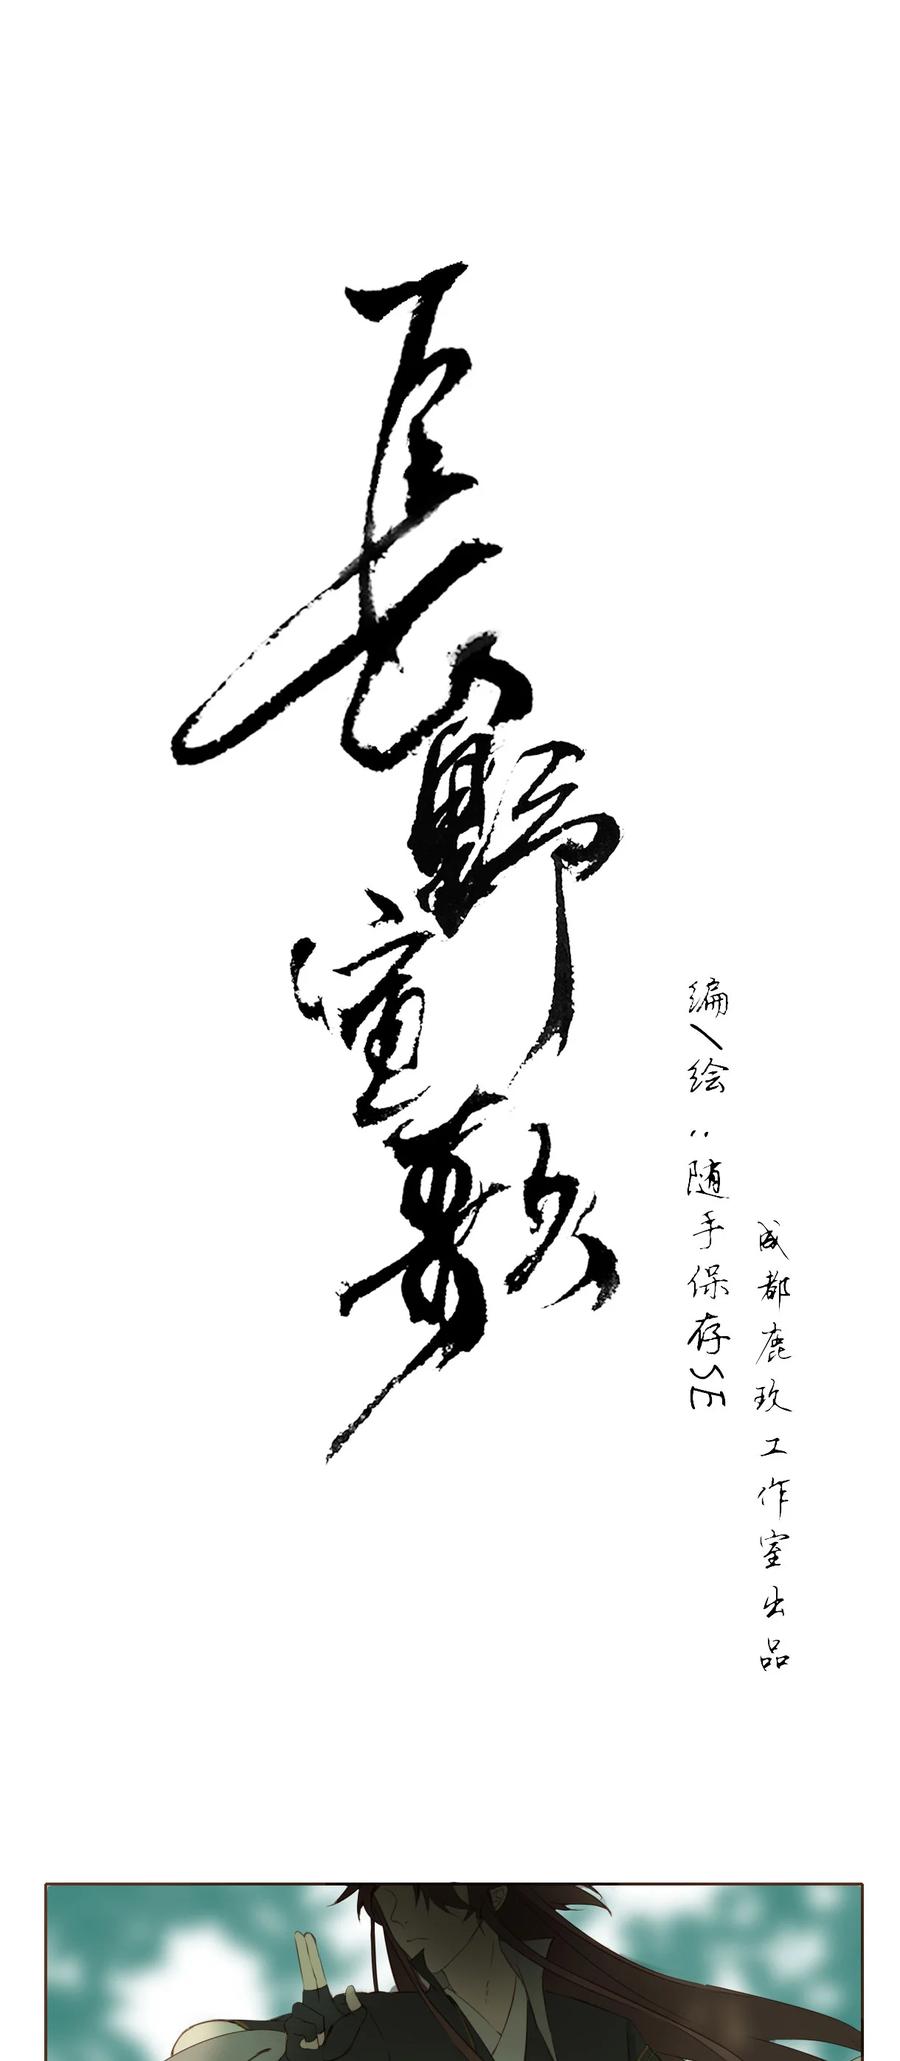 長野宣敷
编/绘:随手保存SE
成都鹿玖工作室出品